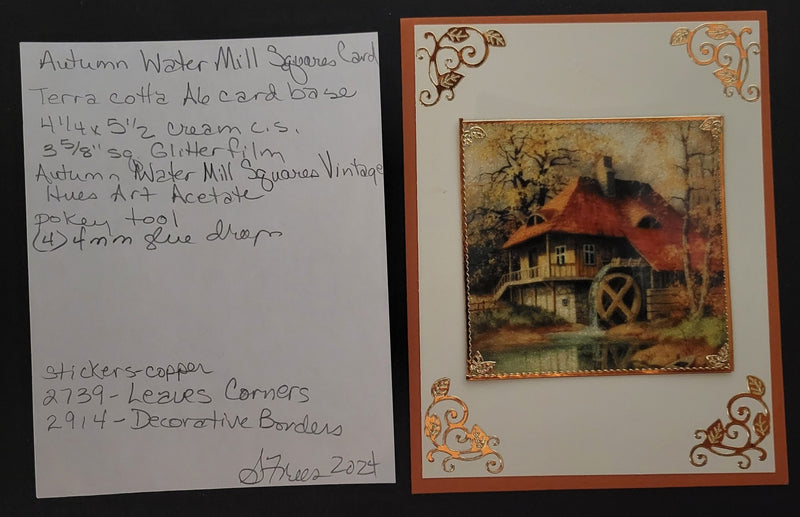 Autumn Water Mill Squares Card
Terra cotta A6 card base
4 1/4 x 5 1/2 cream c.s.
3 5/8" sq. Glitter film
Autumn Water Mill Squares Vintage
Hues Art Acetate
pokey tool
(4) 4mm glue drops
stickers-copper
2739 - Leaves Corners
2914 - Decorative Borders
SFrees 2024